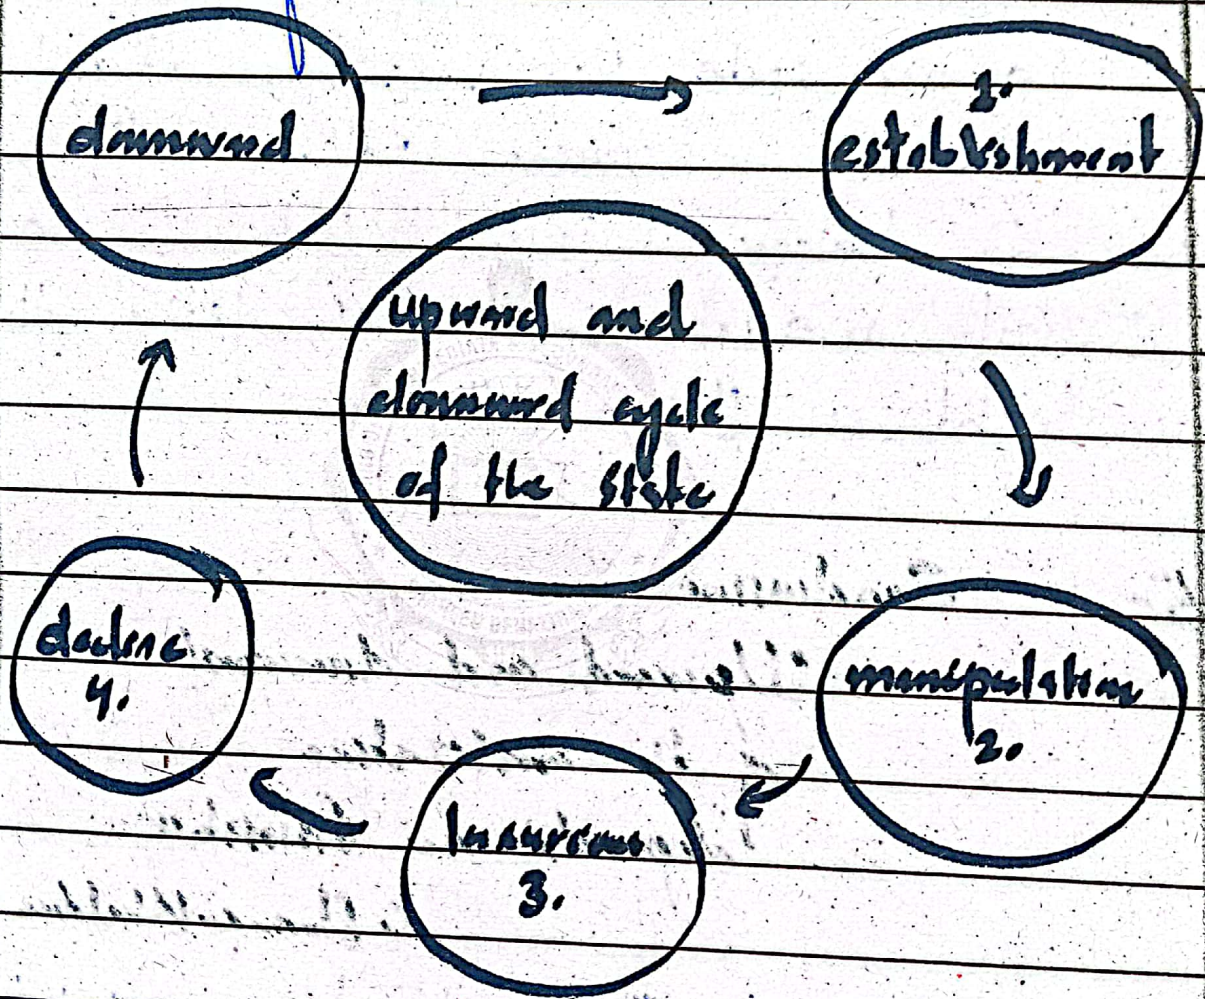 downward
1.
establishment
upward and
downward cycle
of the state
manipulation
2.
luxurious
3.
decline
4.